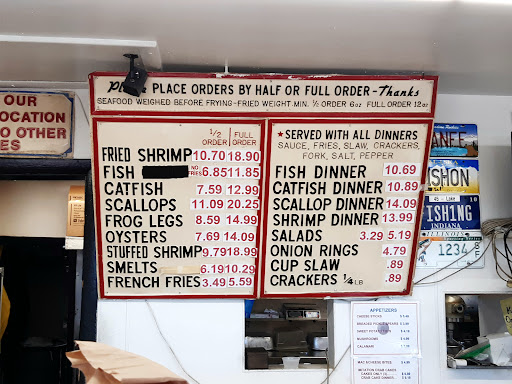 OUR
LOCATION
TO OTHER
ES
PLACE ORDERS BY HALF OR FULL ORDER - Thanks
SEAFOOD WEIGHED BEFORE FRYING-FRIED WEIGHT MIN. ½ ORDER 6oz FULL ORDER 12oz
1/2 ORDER FULL ORDER
FRIED SHRIMP 10.70 18.90
FISH NO FRIES 6.85 11.85
CATFISH 7.59 12.99
SCALLOPS 11.09 20.25
FROG LEGS 8.59 14.99
OYSTERS 7.69 14.09
STUFFED SHRIMP 9.79 18.99
SMELTS 6.19 10.29
FRENCH FRIES 3.49 5.59
★ SERVED WITH ALL DINNERS
SAUCE, FRIES, SLAW, CRACKERS,
FORK, SALT, PEPPER
FISH DINNER 10.69
CATFISH DINNER 10.89
SCALLOP DINNER 14.09
SHRIMP DINNER 13.99
SALADS 3.29 5.19
ONION RINGS 4.79
CUP SLAW .89
CRACKERS ¼ LB .89
ANE
SHON
FISH1NG
INDIANA
ILLINOIS
1234
APPETIZERS
CHEESE STICKS
MUSHROOMS
CALAMARI